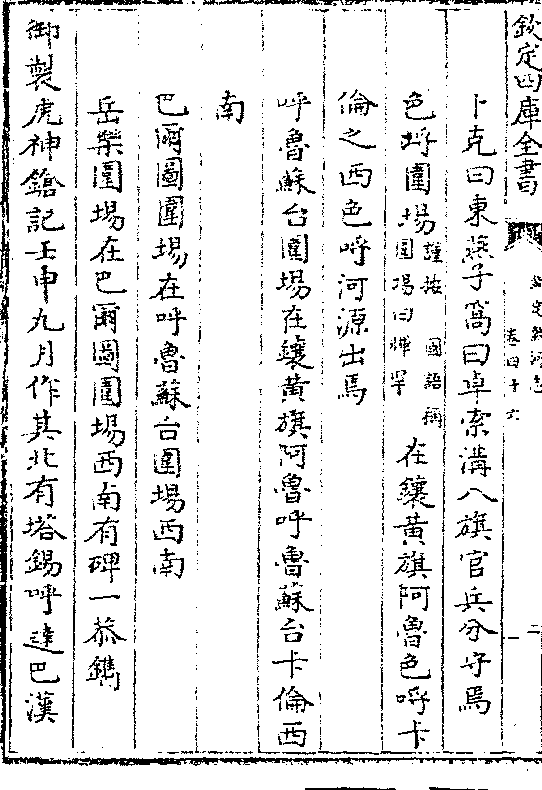 欽定四庫全書
欽定熱河志
卷四十六
二
卜克曰東燕子窩曰卓索溝八旗官兵分守焉
色埒圍場謹按國語稱圍場曰輝罕在鑲黃旗阿魯色呼卡
倫之西色呼河源出焉
呼魯蘇台圍場在鑲黃旗阿魯呼魯蘇台卡倫西
南
巴爾圖圍場在呼魯蘇台圍場西南
岳樂圍場在巴爾圖圍場西南有碑一恭鐫
御製虎神鎗記壬申九月作其北有塔錫呼達巴漢